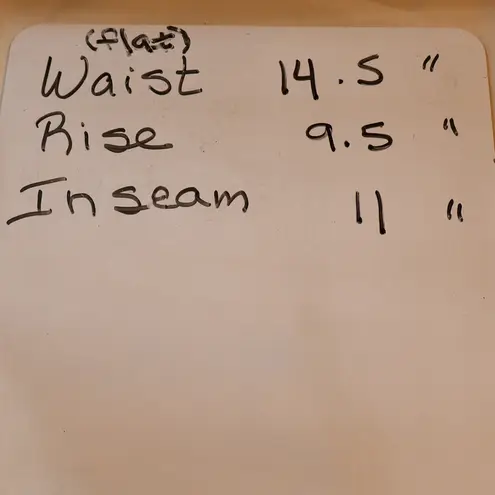 (flat)
Waist 14.5 "
Rise 9.5 "
Inseam 11 "